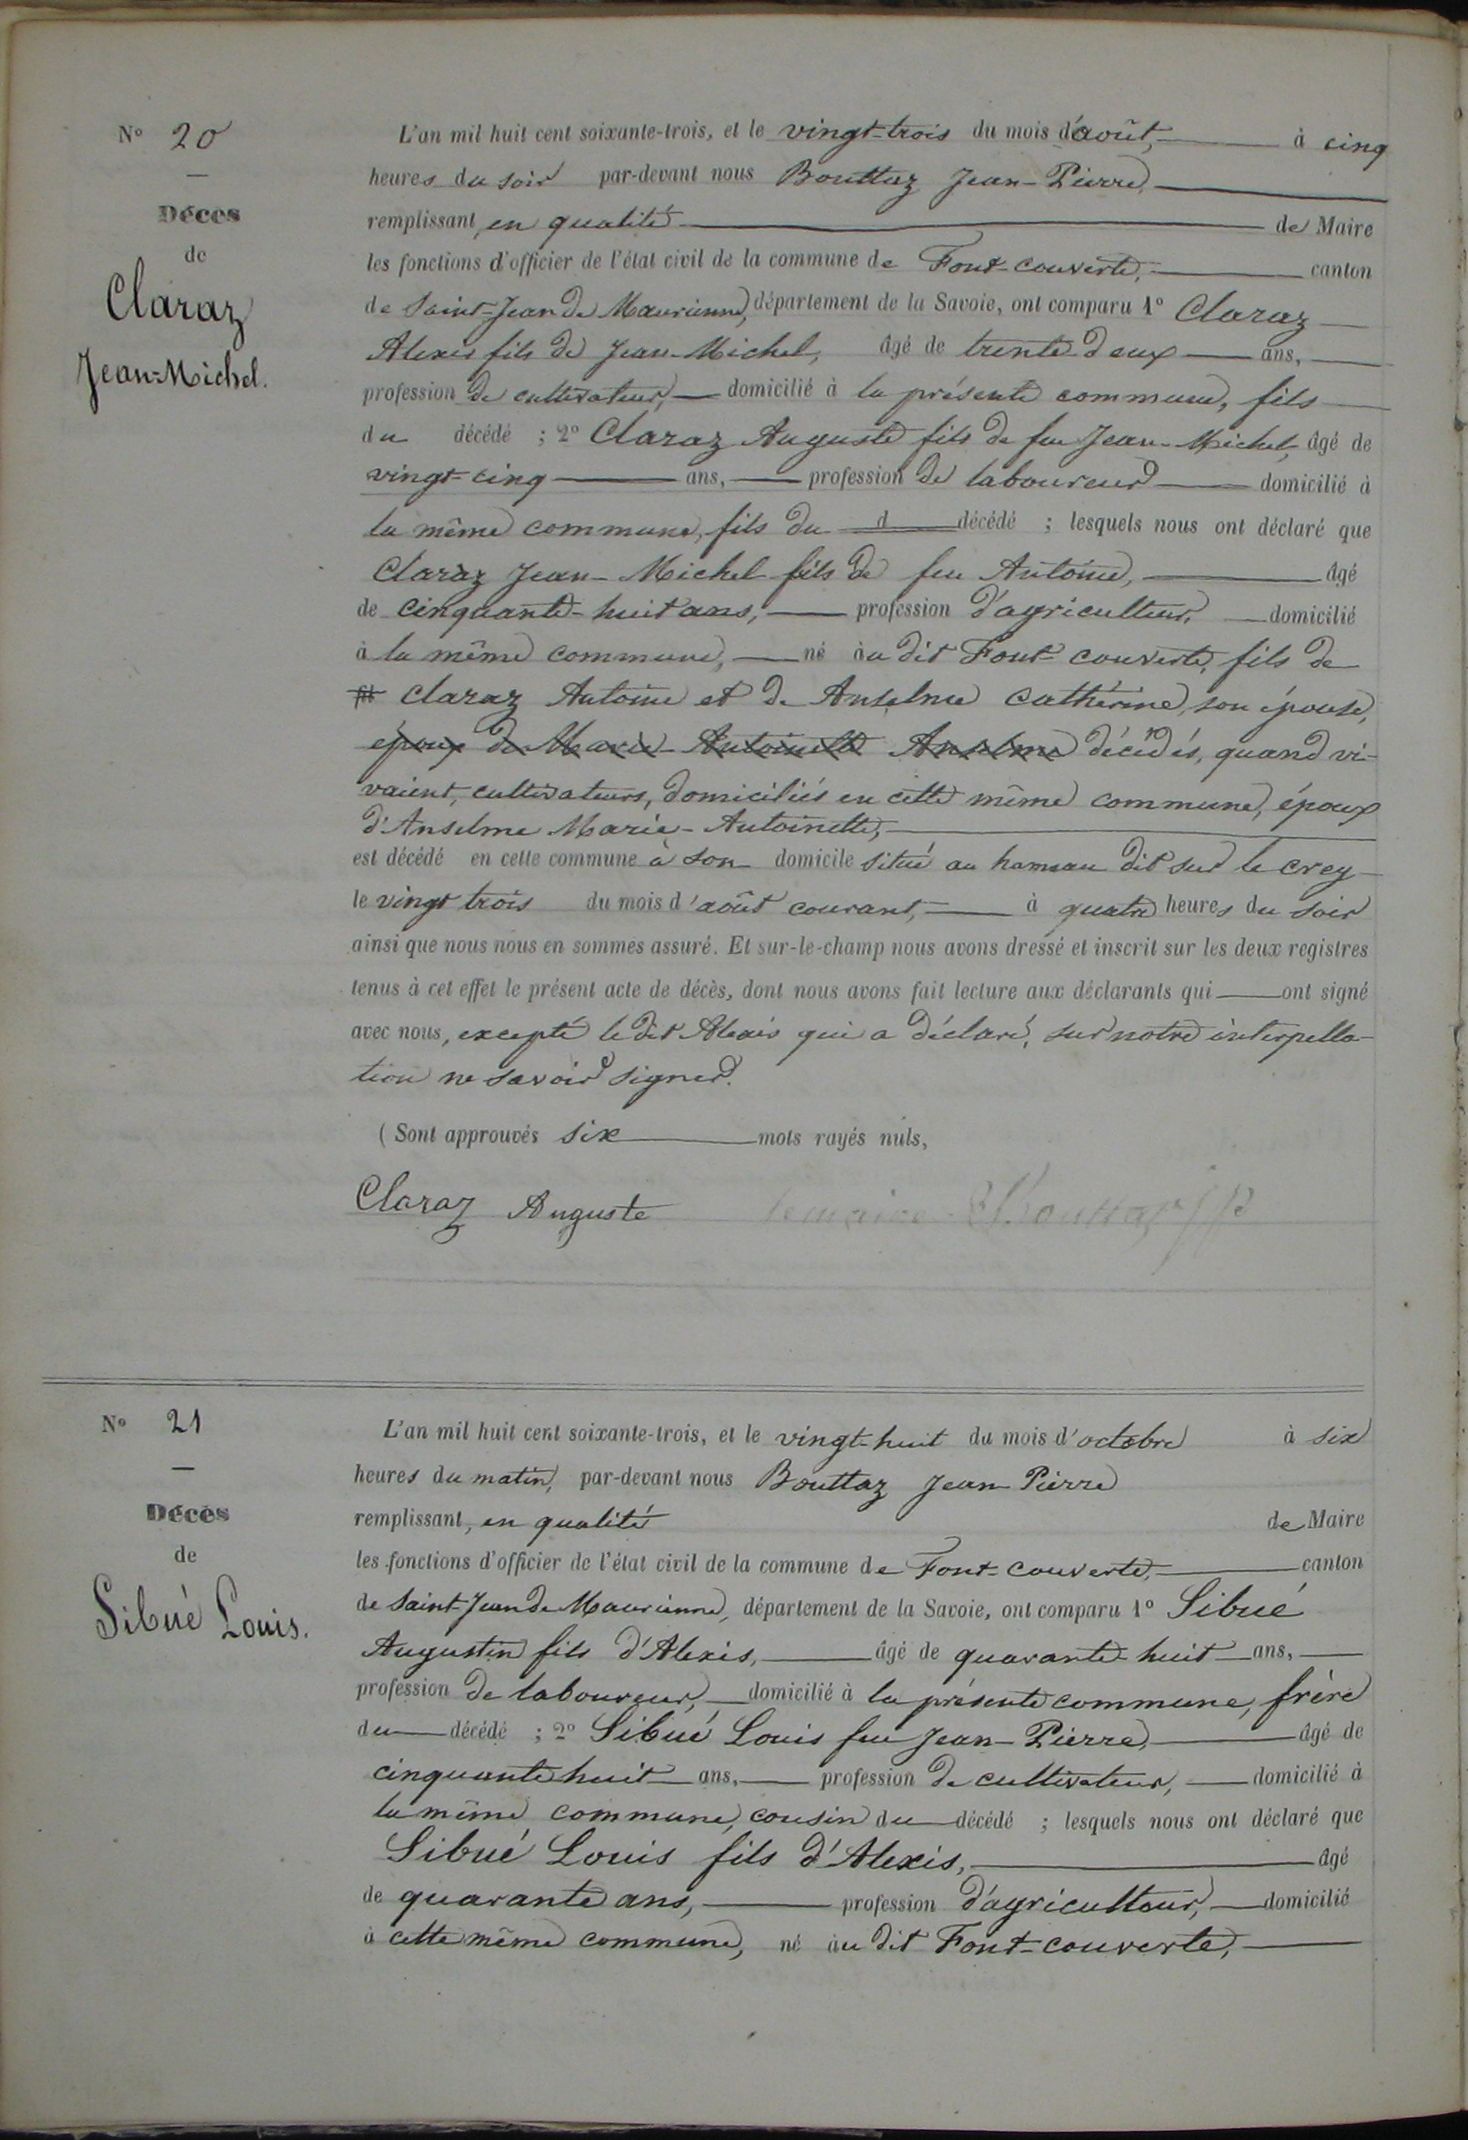 N° 20
Décès
de
Claraz
Jean-Michel.
L'an mil huit cent soixante-trois, et le vingt-trois du mois d'août, à cinq
heures du soir par-devant nous Bouttaz Jean-Pierre,
remplissant, en qualité de Maire
les fonctions d'officier de l'état civil de la commune de Font-couverte, canton
de Saint-Jean de Maurienne, département de la Savoie, ont comparu 1° Claraz
Alexis fils de Jean-Michel, âgé de trente-deux ans,
profession de cultivateur, domicilié à la présente commune, fils
du décédé ; 2° Claraz Auguste fils de feu Jean-Michel, âgé de
vingt-cinq ans, profession de laboureur domicilié à
la même commune, fils du d décédé ; lesquels nous ont déclaré que
Claraz Jean-Michel fils de feu Antoine, âgé
de cinquante-huit ans, profession d'agriculteur, domicilié
à la même commune, né au dit Font-couverte, fils de
fils Claraz Antoine et de Anselme Cathérine, son épouse,
époux de Marie-Antoinette Anselme décédés, quand vi-
vaient, cultivateurs, domiciliés en cette même commune, époux
d'Anselme Marie-Antoinette,
est décédé en cette commune à son domicile situé au hameau dit sur le crey
le vingt trois du mois d'août courant, à quatre heures du soir
ainsi que nous nous en sommes assuré. Et sur-le-champ nous avons dressé et inscrit sur les deux registres
tenus à cet effet le présent acte de décès, dont nous avons fait lecture aux déclarants qui ont signé
avec nous, excepté le dit Alexis qui a déclaré, sur notre interpella-
tion ne savoir signer.
(Sont approuvés six mots rayés nuls,
Claraz Auguste le maire Bouttaz JP
N° 21
Décès
de
Sibué Louis.
L'an mil huit cent soixante-trois, et le vingt-huit du mois d'octobre à six
heures du matin, par-devant nous Bouttaz Jean-Pierre
remplissant, en qualité de Maire
les fonctions d'officier de l'état civil de la commune de Font-couverte, canton
de Saint-Jean de Maurienne, département de la Savoie, ont comparu 1° Sibué
Augustin fils d'Alexis, âgé de quarante-huit ans,
profession de laboureur, domicilié à la présente commune, frère
du décédé ; 2° Sibué Louis feu Jean-Pierre, âgé de
cinquante huit ans, profession de cultivateur, domicilié à
la même commune, cousin du décédé ; lesquels nous ont déclaré que
Sibué Louis fils d'Alexis, âgé
de quarante ans, profession d'agriculteur, domicilié
à cette même commune, né au dit Font-couverte,